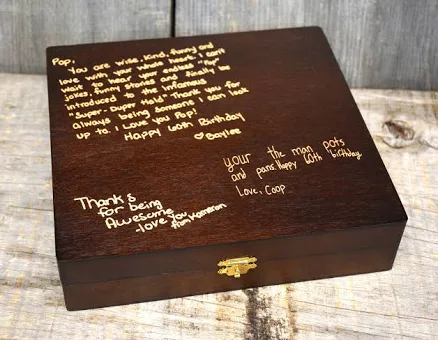 Pop,
You are wise, kind, funny and
love with your whole heart. I can't
wait to hear your endless "Pop"
jokes, funny stories and finally be
introduced to the infamous
"Super-Duper told" Thank you for
always being someone I can look
up to. I Love you Pop!
Happy 60th Birthday
♡Baylee
your the man pots
and pans. Happy 60th birthday
Love, Coop
Thanks
for being
Awesome
-love you
from Kameron